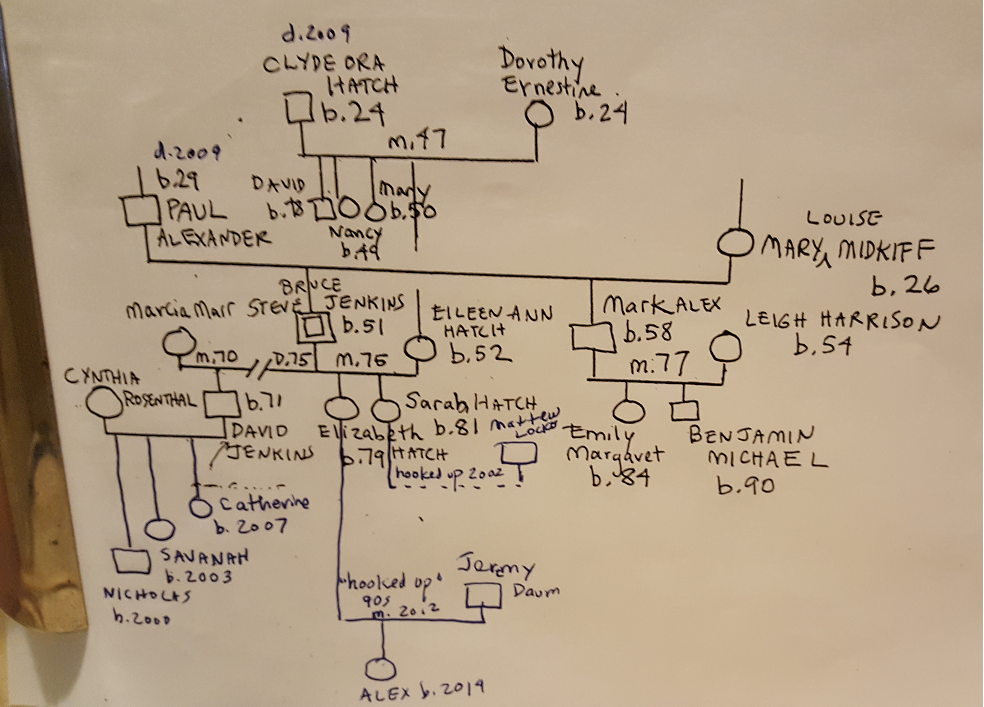 d.2009
CLYDE ORA
HATCH
b.24
Dorothy
Ernestine
b.24
m.47
d.2009
b.29
PAUL
ALEXANDER
DAVID
b.78
Nancy
b.49
Mary
b.50
LOUISE
MARY MIDKIFF
b.26
Marcia Marr
STEVE
BRUCE
JENKINS
b.51
EILEEN ANN
HATCH
b.52
Mark ALEX
b.58
LEIGH HARRISON
b.54
m.70
D.75
m.76
m.77
CYNTHIA
ROSENTHAL
b.71
DAVID
JENKINS
Elizabeth
HATCH
b.79
Sarah HATCH
b.81
Mattew
Locke
hooked up 2002
Emily
Margaret
b.84
BENJAMIN
MICHAEL
b.90
Catherine
b.2007
SAVANAH
b.2003
NICHOLAS
b.2000
"hooked up"
90s
m. 2012
Jeremy
Daum
ALEX b.2014